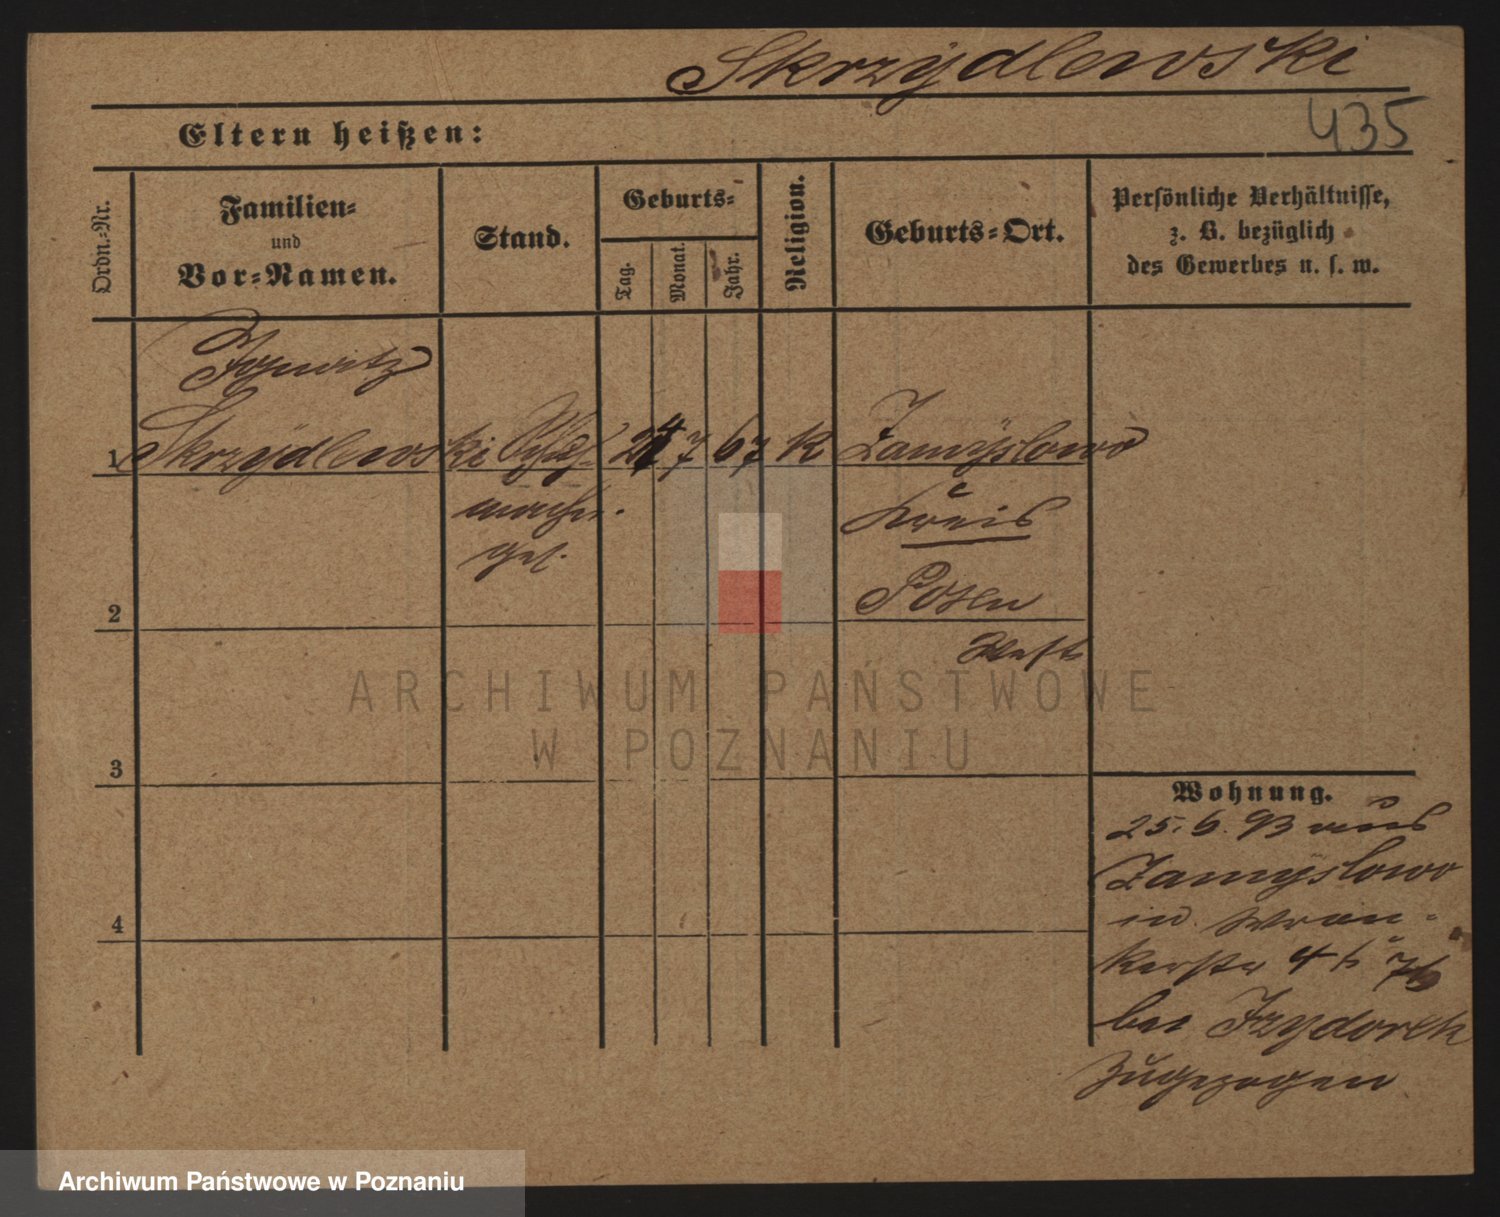 Skrzydlewski
435
Eltern heißen:
Ordn.-Nr.
Familien-
und
Vor-Namen.
Stand.
Geburts-
Tag.
Monat.
Jahr.
Religion.
Geburts-Ort.
Persönliche Verhältnisse,
z. B. bezüglich
des Gewerbes u. s. w.
Ignatz
1 Skrzydlewski 24 7 67 K Zamyslowo
macher
Kreis
ges.
Posen
2
West
3
4
Wohnung.
25. 6. 93 aus
Zamyslowo
in Wron-
kerstr 4 b
bei Izydorek
zugezogen
ARCHIWUM PAŃSTWOWE
W POZNANIU
Archiwum Państwowe w Poznaniu